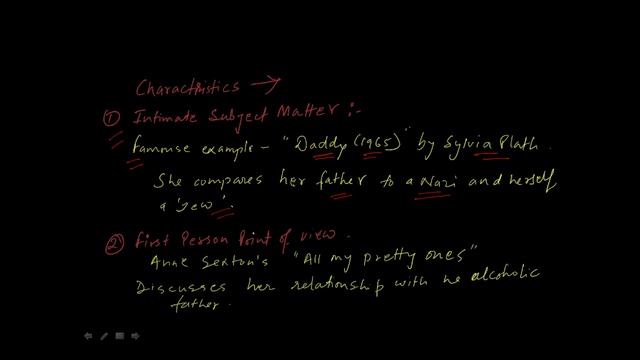 Charactristics →
① Intimate Subject Matter :-
Famouse example - "Daddy (1965)" by Sylvia Plath.
She compares her father to a Nazi and herself
a 'Jew'.
② First Person Point of view.
Anne Sexton's "All my pretty ones"
Discusses her relationship with he alcoholic
father.